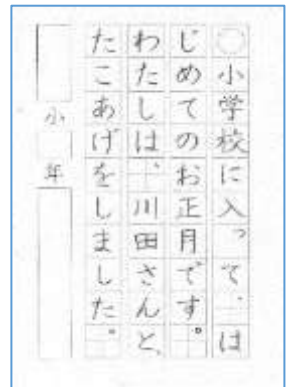 ○小学校に入って、は
じめてのお正月です。
わたしは、川田さんと、
たこあげをしました。
小
年